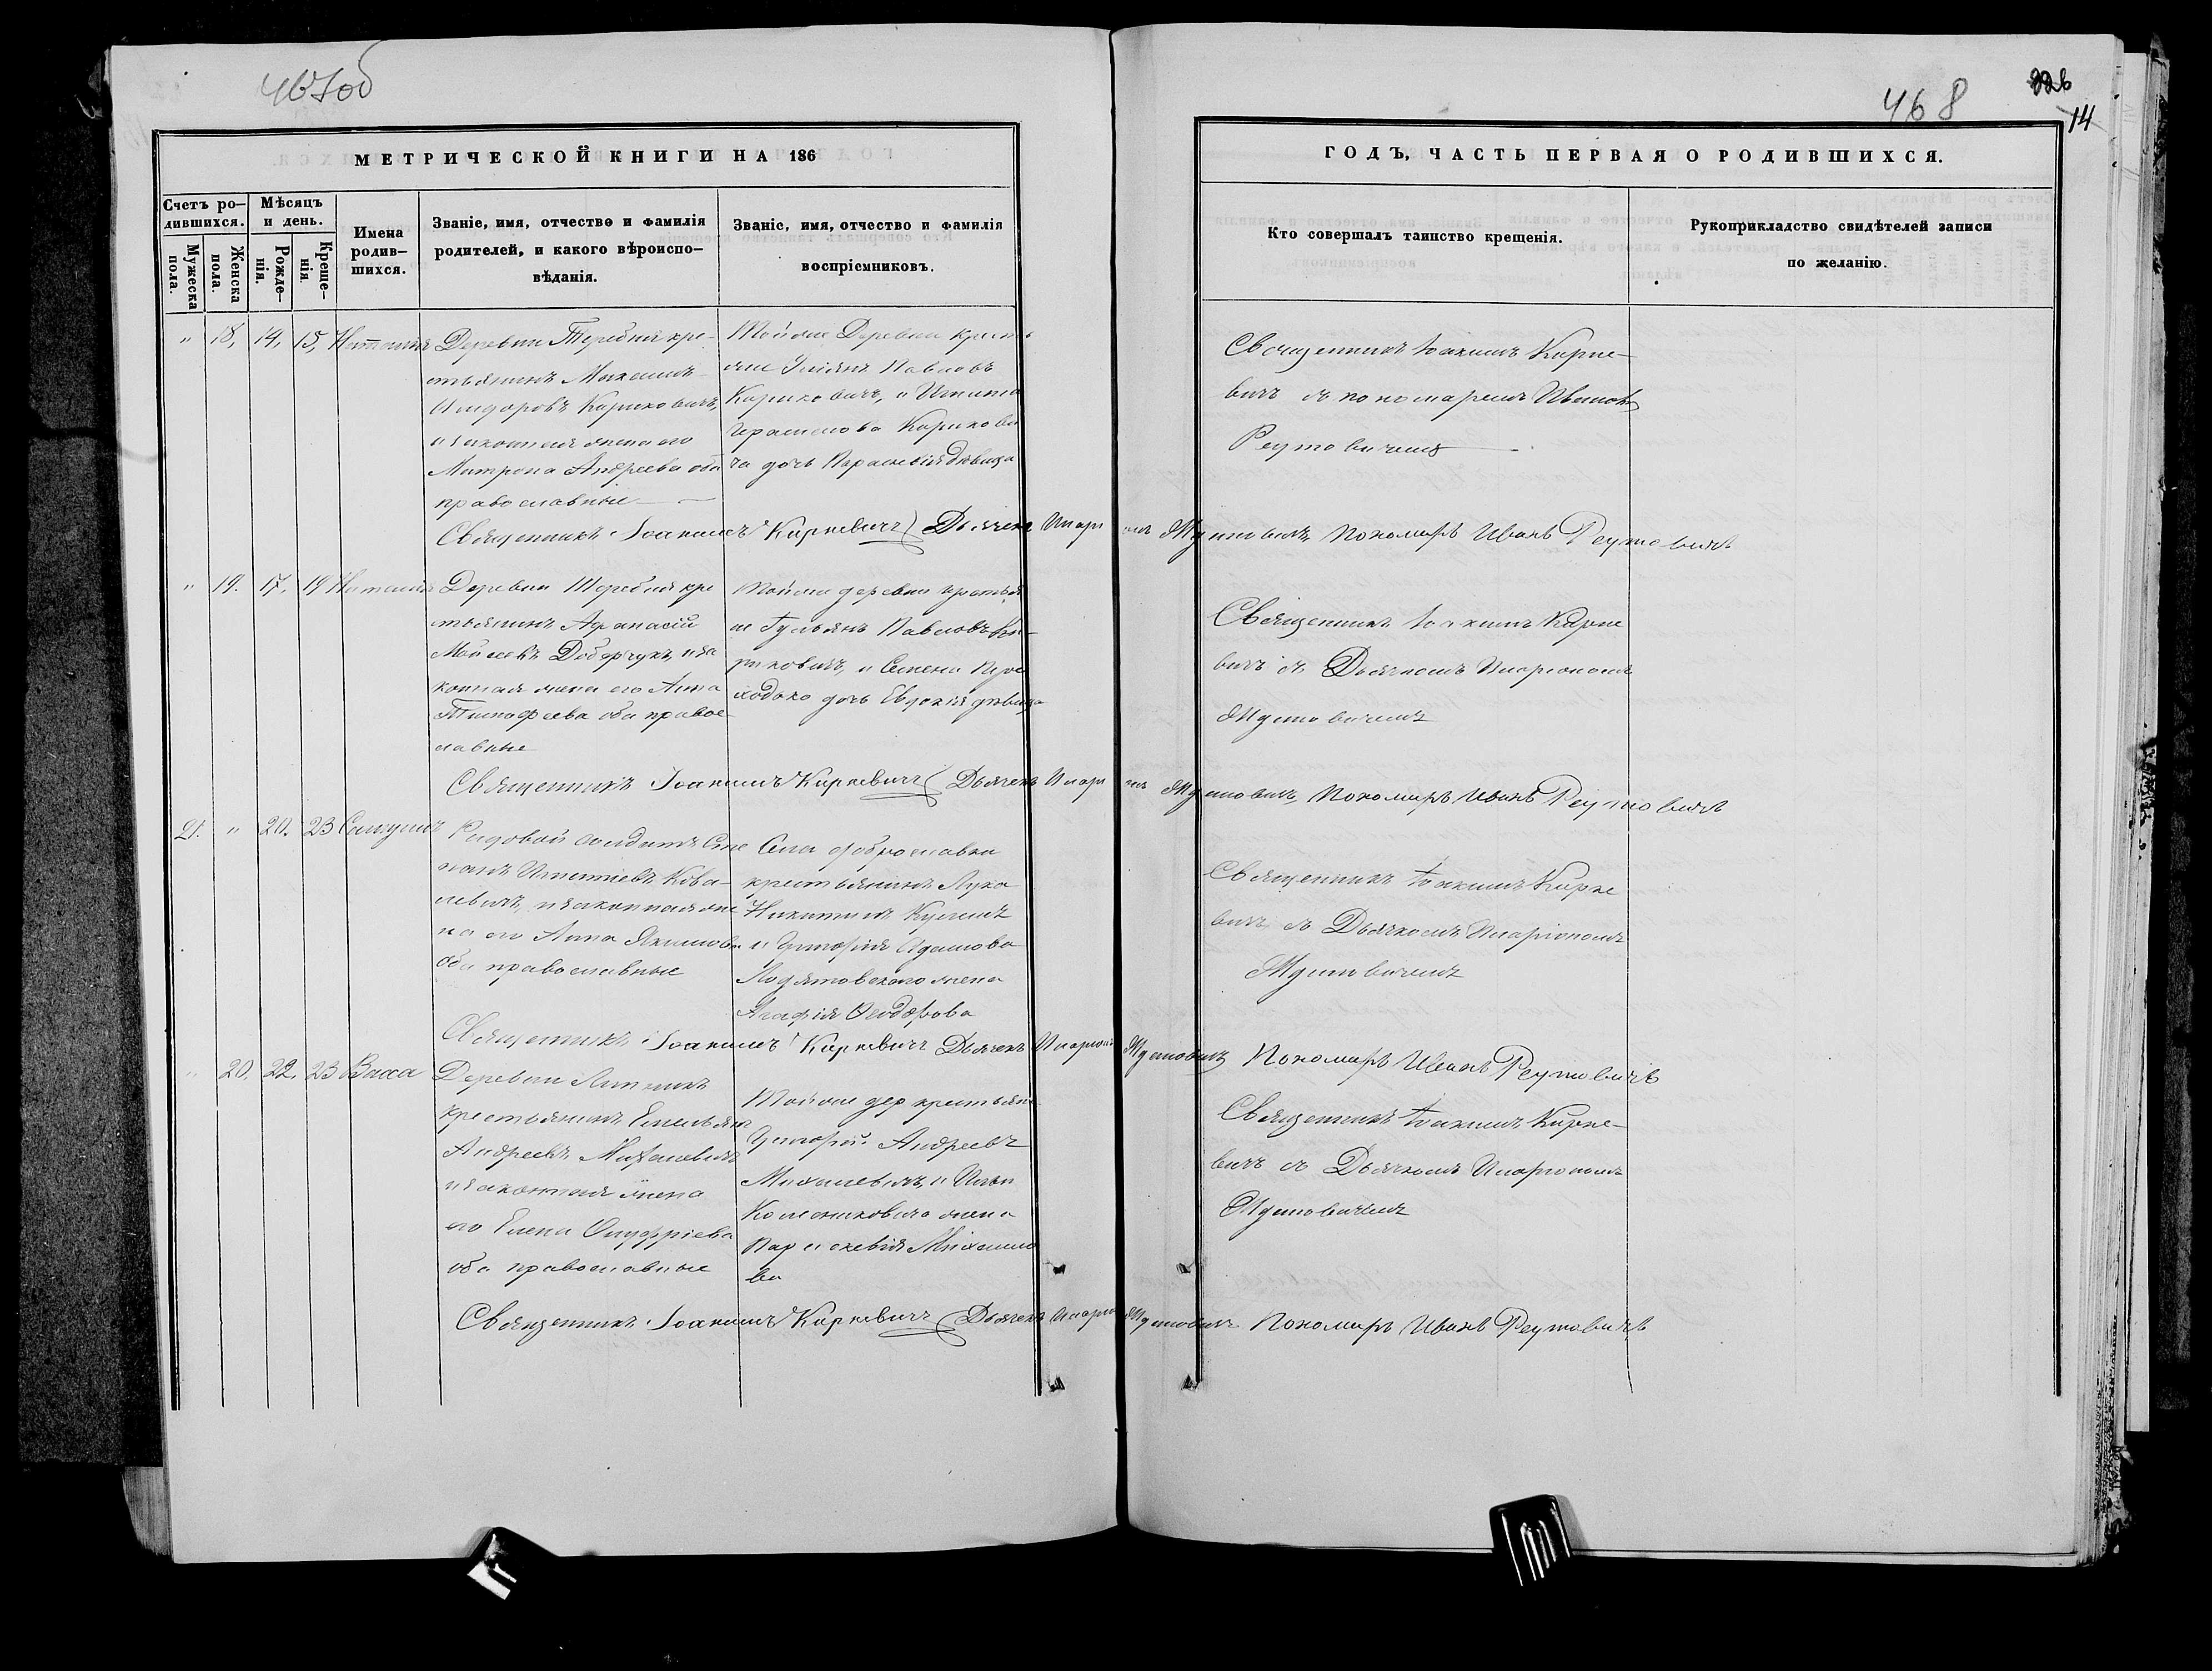 467об
468
226
14
МЕТРИЧЕСКОЙ КНИГИ НА 186
ГОДЪ, ЧАСТЬ ПЕРВАЯ О РОДИВШИХСЯ.
Счетъ ро-
дившихся.
Мужеска
пола.
Женска
пола.
Мѣсяцъ
и день.
Рожде-
нія.
Креще-
нія.
Имена
родив-
шихся.
Званіе, имя, отчество и фамилія
родителей, и какого вѣроиспо-
вѣданія.
Званіе, имя, отчество и фамилія
воспріемниковъ.
Кто совершалъ таинство крещенія.
Рукоприкладство свидѣтелей записи
по желанію.
" 18, 14, 15, Наталія
Деревни Теребня кре-
стьянинъ Михаилъ
Сидоровъ Кариковичъ,
и законная жена его
Матрона Андреева оба
православные
Тойже Деревни кресть
яне Павловъ
Кариковичъ, и Игната
Герасимова Карикови
ча дочь Параскевія дѣвица
Священникъ Іоакимъ Кирке-
вичъ съ пономаремъ Иваномъ
Реутовичемъ
Священникъ Іоакимъ Киркевичъ Дьячекъ Иларіонъ Ждановичъ Пономарь Иванъ Реутовичъ
" 19. 17. 19 Наталія
Деревни Теребня кре
стьянинъ Афанасій
Мойсеевъ и за
конная жена его Анна
Тимофеева оба правос
лавные
Тойже деревни крестья
не Павловъ Ка-
риковичъ, и Семена Про
ходько дочь Евдокія дѣвица
Священникъ Іоакимъ Кирке
вичъ съ Дьячкомъ Иларіономъ
Ждановичемъ
Священникъ Іоакимъ Киркевичъ Дьячекъ Иларіонъ Ждановичъ Пономарь Иванъ Реутовичъ
21. " 20. 23
Рядовой солдатъ Сте
панъ Игнатіевъ Кова-
левичъ, и законная же
на его Анна Якимова
оба православные
Села Доброславки
крестьянинъ Лука
Никитинъ
и Григорія Адамова
жена
Агафія Феодорова
Священникъ Іоакимъ Кирке
вичъ съ Дьячкомъ Иларіономъ
Ждановичемъ
Священникъ Іоакимъ Киркевичъ Дьячекъ Иларіонъ Ждановичъ Пономарь Иванъ Реутовичъ
" 20. 22. 23 Васса
Деревни
крестьянинъ Емельянъ
Андреевъ Михалевичъ
и законная жена
его Елена Онуфріева
оба православные
Тойже дер крестьян
Григорій Андреевъ
Михалевичъ, и Ильи
Колесниковича жена
Параскевія Михаило
ва
Священникъ Іоакимъ Кирке-
вичъ съ Дьячкомъ Иларіономъ
Ждановичемъ
Священникъ Іоакимъ Киркевичъ Дьячекъ Иларіонъ Ждановичъ Пономарь Иванъ Реутовичъ